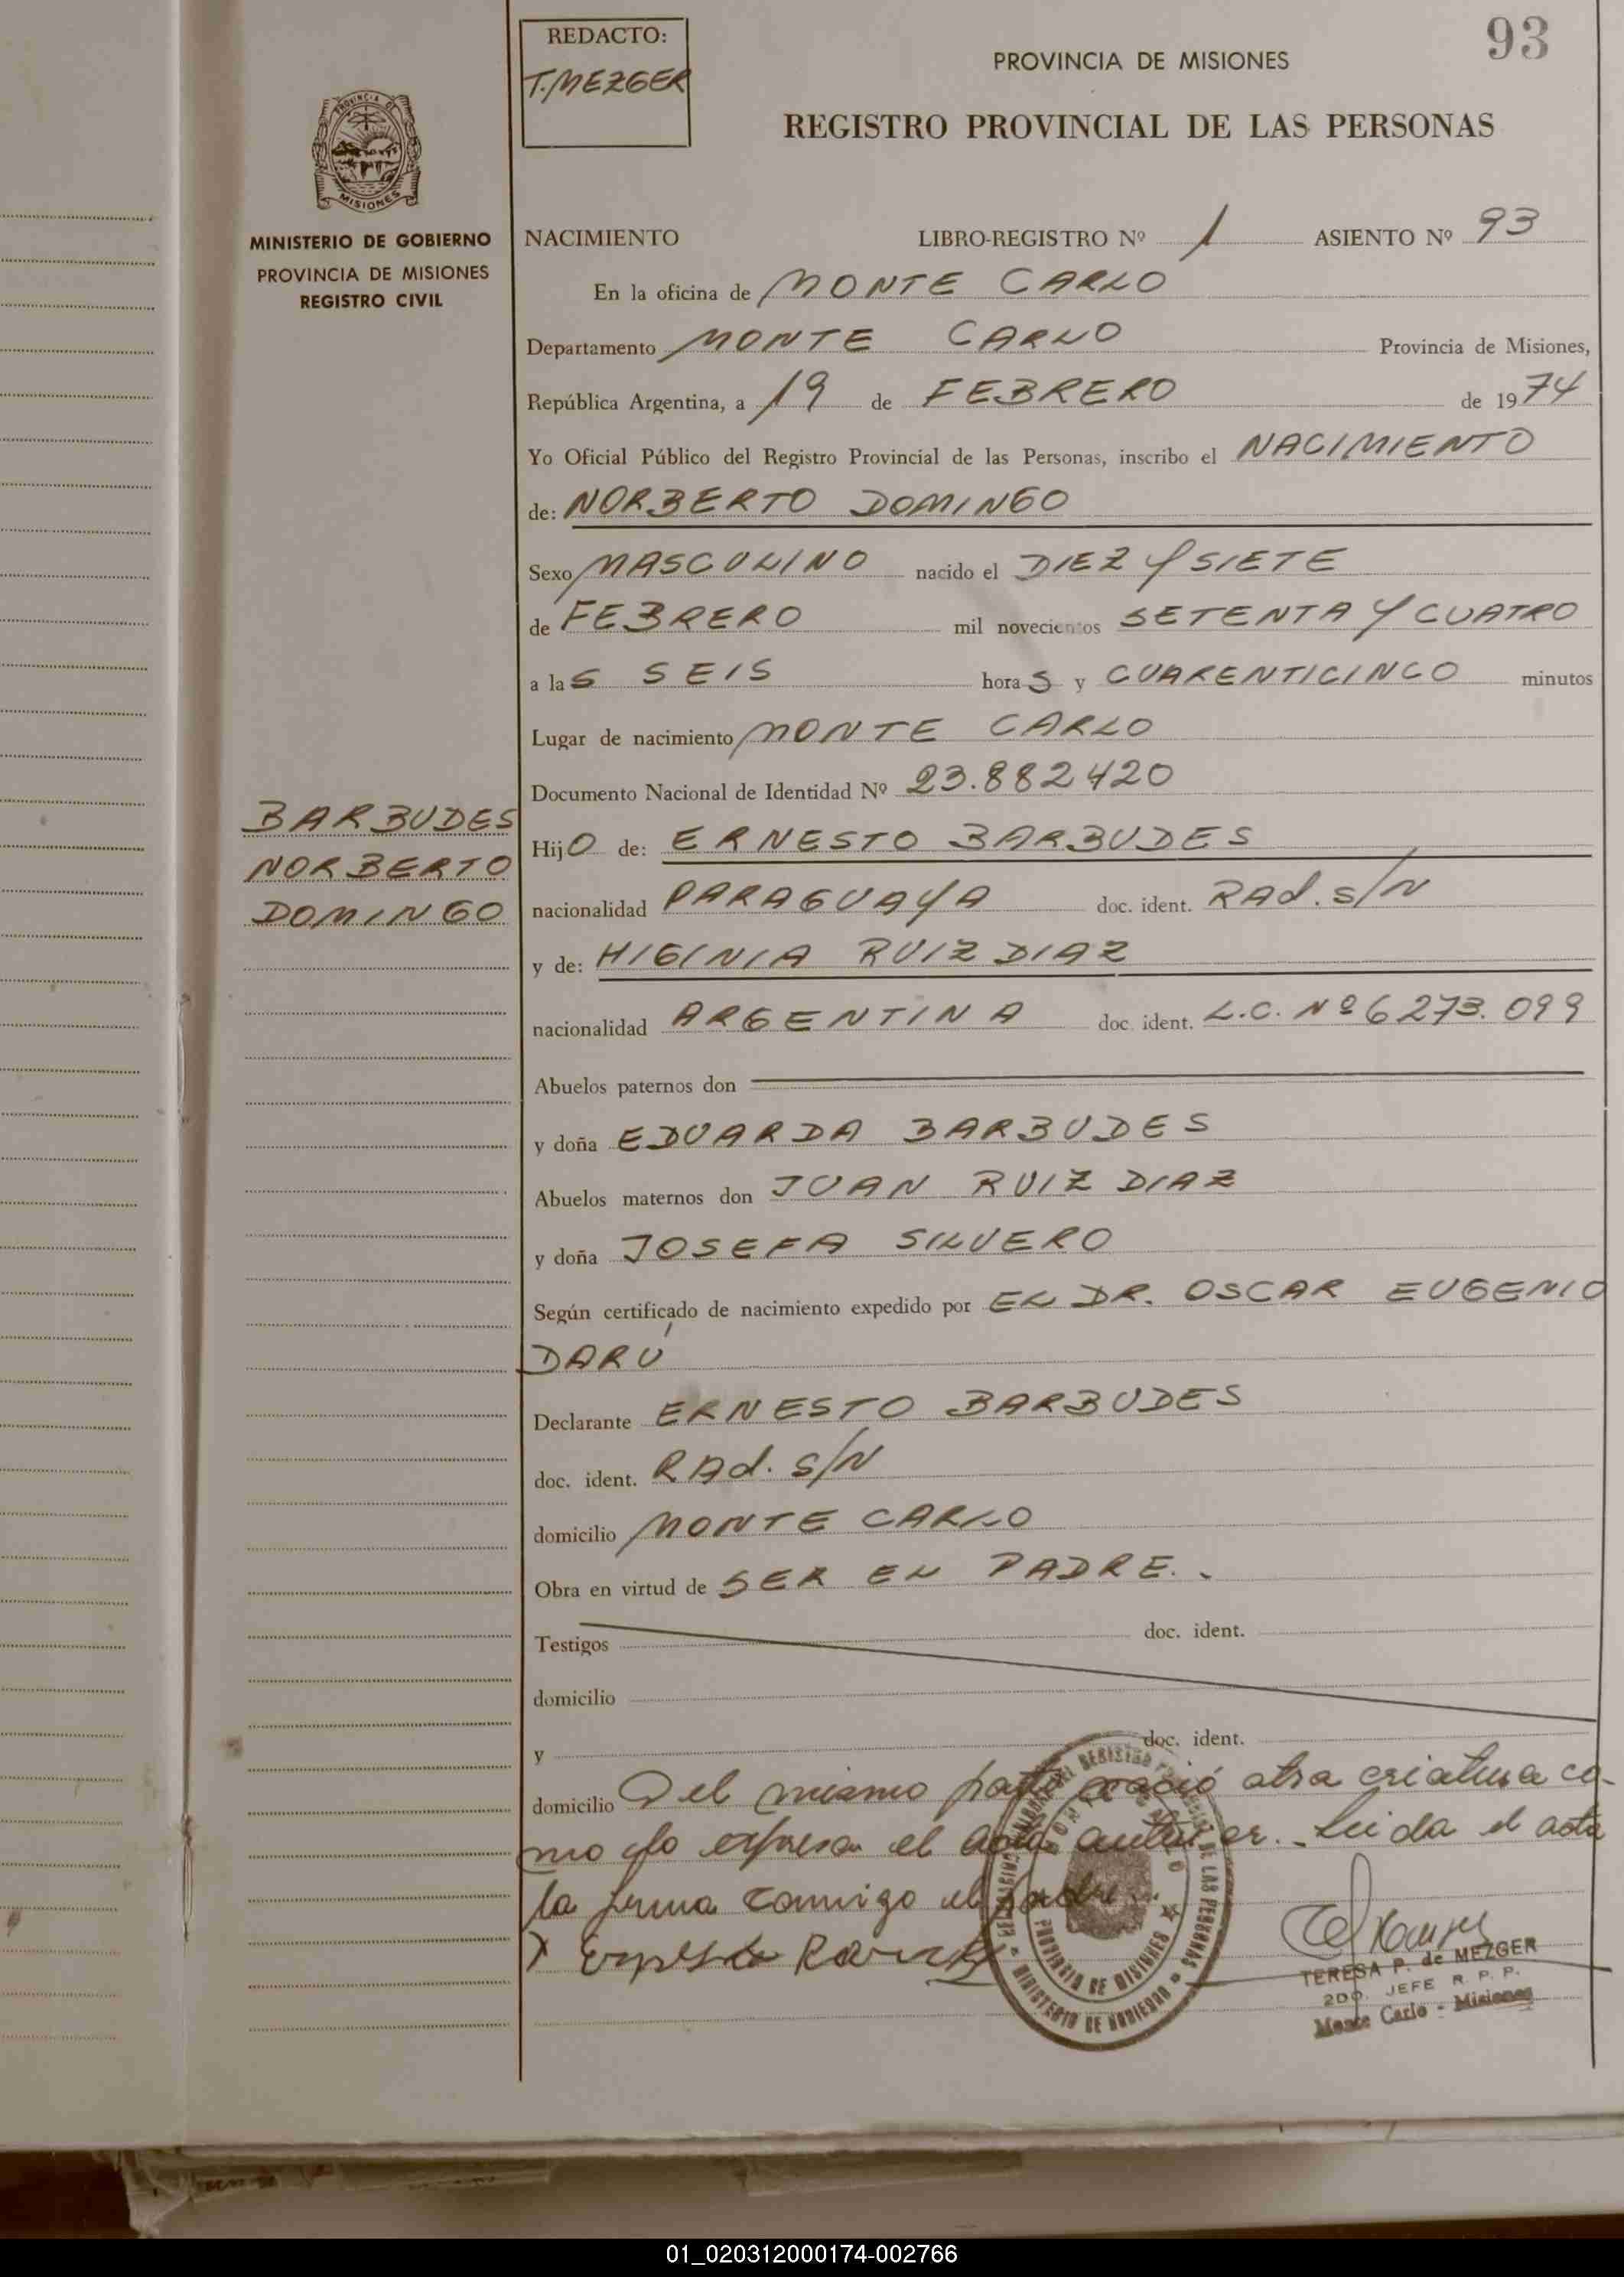 93
REDACTO:
T. MEZGER
PROVINCIA DE MISIONES
REGISTRO PROVINCIAL DE LAS PERSONAS
PROVINCIA DE
MISIONES
MINISTERIO DE GOBIERNO
PROVINCIA DE MISIONES
REGISTRO CIVIL
NACIMIENTO LIBRO-REGISTRO Nº 1 ASIENTO Nº 93
En la oficina de MONTE CARLO
Departamento MONTE CARLO Provincia de Misiones,
República Argentina, a 19 de FEBRERO de 1974
Yo Oficial Público del Registro Provincial de las Personas, inscribo el NACIMIENTO
de: NORBERTO DOMINGO
Sexo MASCULINO nacido el DIEZ Y SIETE
de FEBRERO mil novecientos SETENTA Y CUATRO
a las SEIS horas y CUARENTICINCO minutos
Lugar de nacimiento MONTE CARLO
Documento Nacional de Identidad Nº 23.882420
BARBUDES
NORBERTO
DOMINGO
Hijo de: ERNESTO BARBUDES
nacionalidad PARAGUAYA doc. ident. RAd. s/N
y de: HIGINIA RUIZ DIAZ
nacionalidad ARGENTINA doc. ident. L.C. Nº 6273.099
Abuelos paternos don
y doña EDUARDA BARBUDES
Abuelos maternos don JUAN RUIZ DIAZ
y doña JOSEFA SILVERO
Según certificado de nacimiento expedido por EL DR. OSCAR EUGENIO
DARÚ
Declarante ERNESTO BARBUDES
doc. ident. RAd. s/N
domicilio MONTE CARLO
Obra en virtud de SER EL PADRE.
Testigos doc. ident.
domicilio
y doc. ident.
domicilio Del mismo parto nació otra criatura co-
mo lo expresa el acta anterior. Leida el acta
la firma conmigo el padre
TERESA P. de MEZGER
2DO. JEFE R. P. P.
Monte Carlo - Misiones
PROVINCIA DE MISIONES
MINISTERIO DE GOBIERNO
01_020312000174-002766